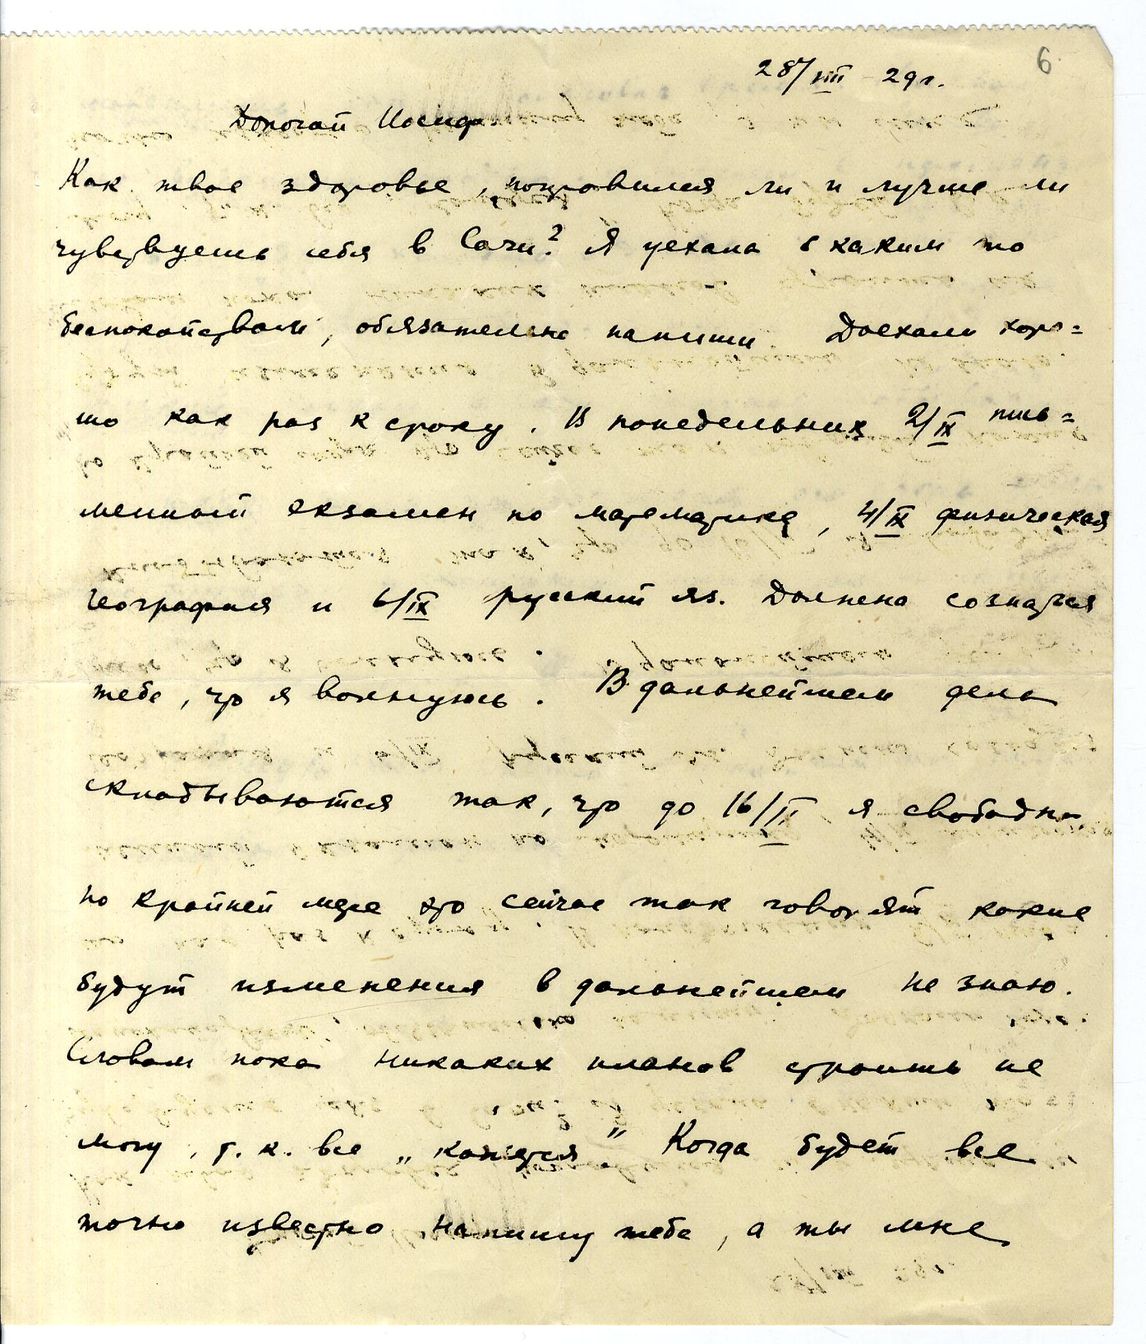 6
28/VIII 29г.
Дорогой Иосиф
Как твое здоровье, поправился ли и лучше ли
чувствуешь себя в Сочи? Я уехала с каким то
беспокойством, обязательно напиши. Доехали хоро=
шо как раз к сроку. В понедельник 2/IX пись=
менный екзамен по математике, 4/IX физическая
география и 6/IX русский яз. Должна сознаться
тебе, что я волнуюсь. В дальнейшем дела
складываются так, что до 16/IX я свободна
по крайней мере это сейчас так говорят какие
будут изменения в дальнейшем не знаю.
Словом пока никаких планов строить не
могу, т.к. все „кажется" Когда будет все
точно известно напишу тебе, а ты мне